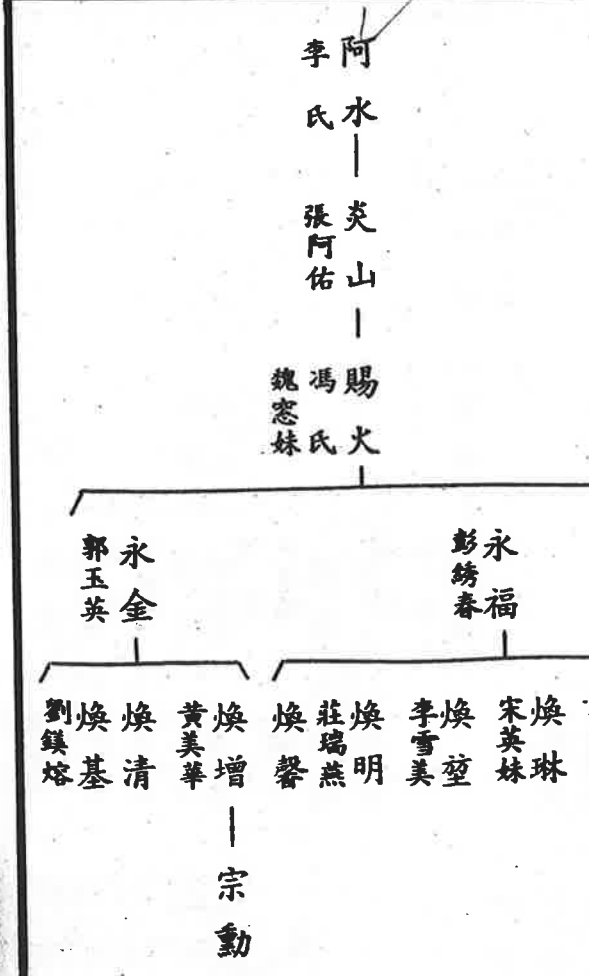 阿水
李氏
炎山
張阿佑
賜火
馮氏
魏窓妹
永福
彭綉春
永金
郭玉英
煥琳
宋英妹
煥堃
李雪美
煥明
莊瑞燕
煥馨
煥增
黃美華
煥清
煥基
劉鎂熔
宗勳